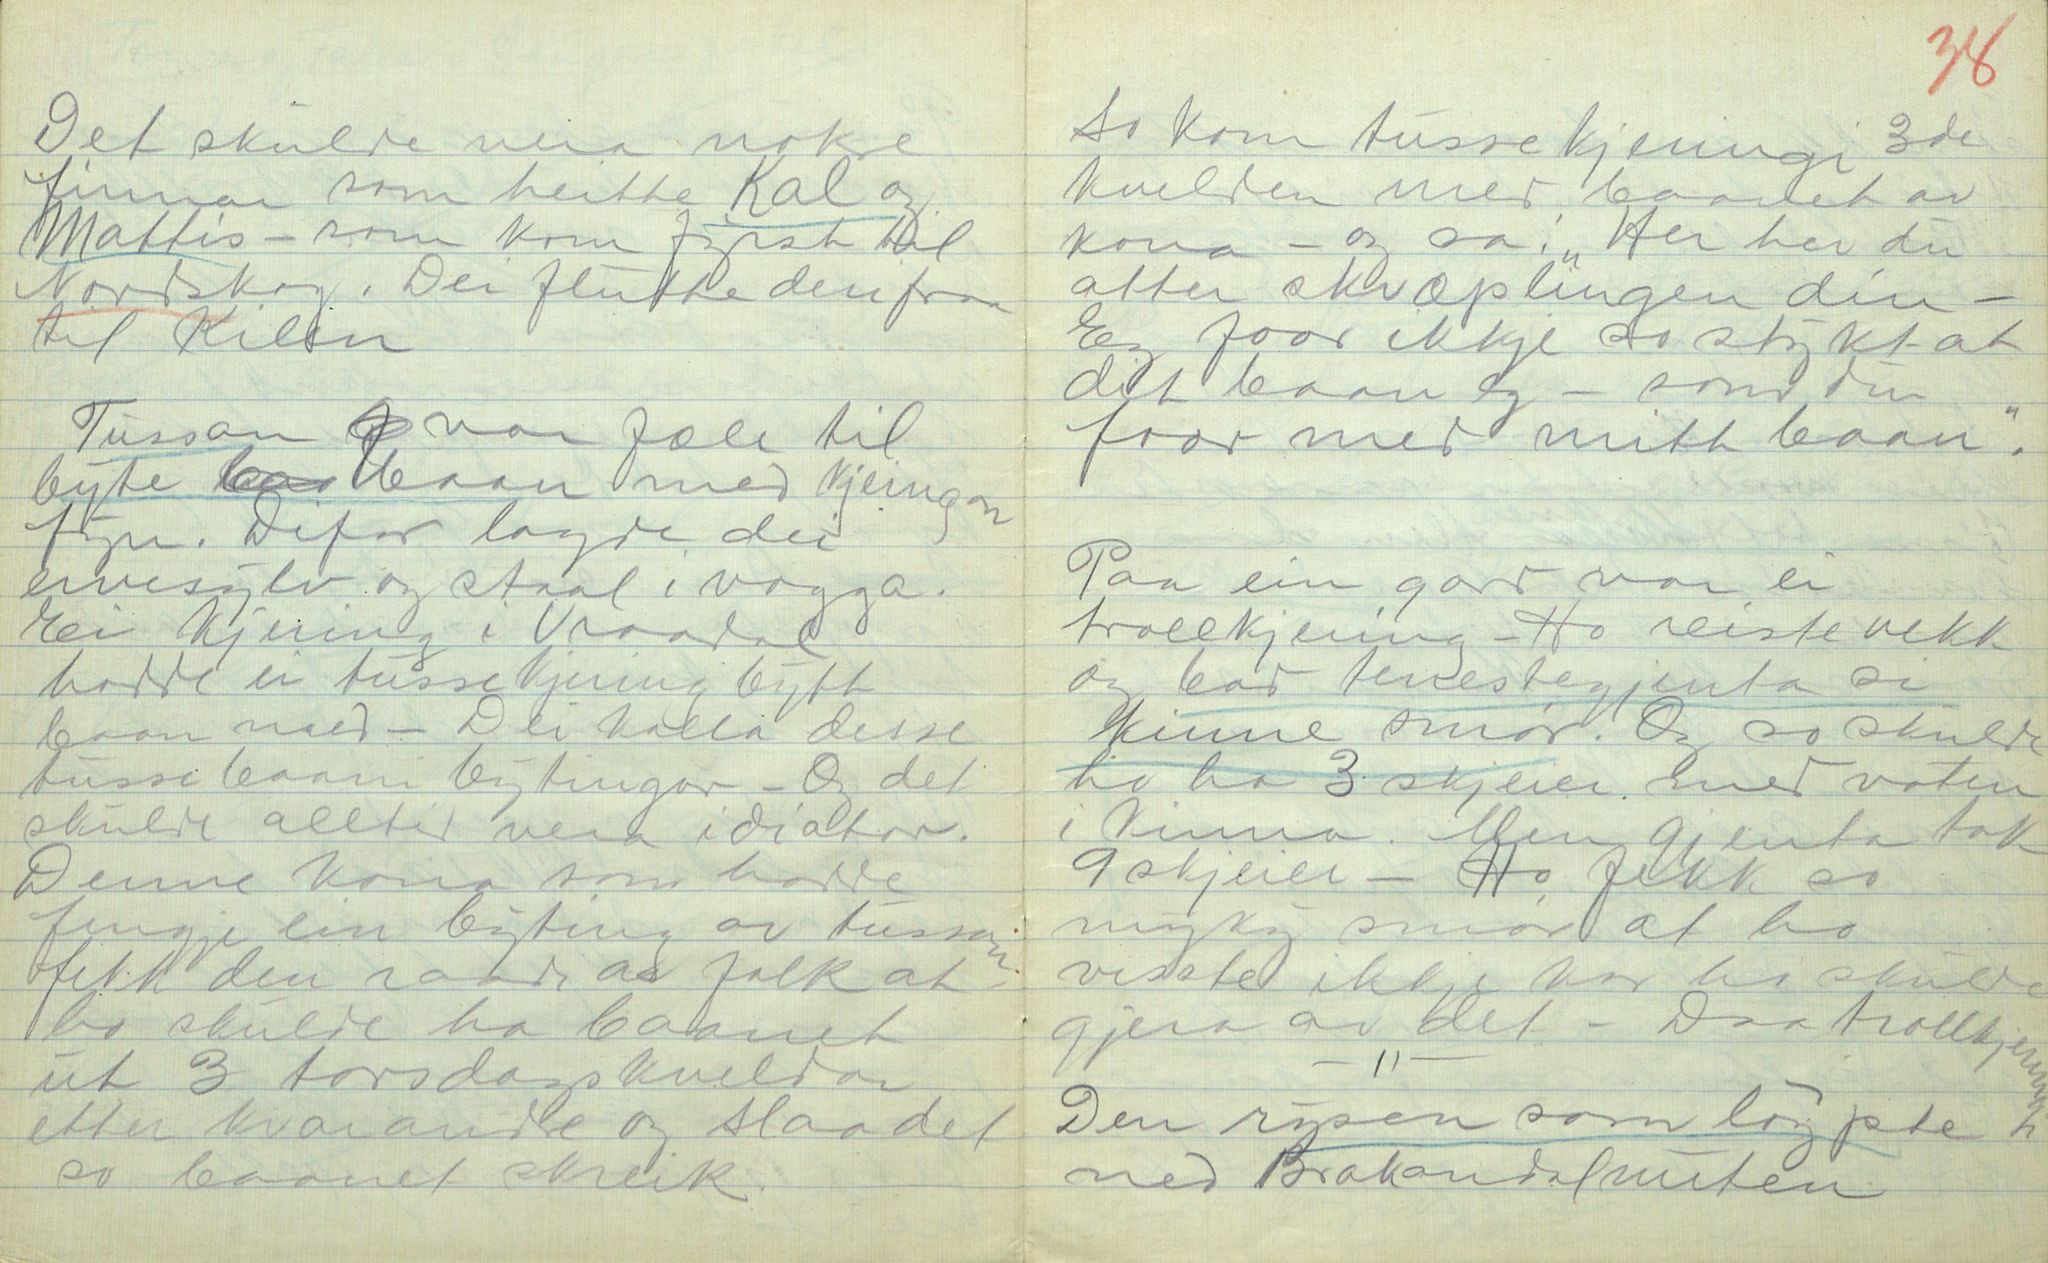 Det skulde vera nokre
finnar som heitte Kal og
Mattis – som kom fyrst til
Nordskog. Dei flutte derifraa
til Kilen
Tussan var fæle til
byte baan med kjeringan
fyr. Difor lagde dei
ervesylv og staal i vogga.
Ei kjering i Vraadal
hadde ei tussekjering bytt
baan med – Dei kalla desse
tussebaani bytingar – Og det
skulde alltid vera idiotar.
Denne kona som hadde
fengje ein byting av tussan
fekk den raadi av folk at
ho skulde ha baanet
ut 3 torsdagskveldar
etter kvarandre og slaa det
so baanet skreik.
38
So kom tussekjeringi 3de
kvelden med baanet av
kona – og sa: "Her her du
atter skvæplingen din –
Eg foor ikkje so stykt at
dit baan eg – som du
foor med mitt baan".
Paa ein gard var ei
trollkjering – Ho reiste vekk
og bad tenestegjenta si
kinne smør. Og so skulde
ho ha 3 skjeier med vaten
i kinna. Men gjenta tok
9 skjeier – Ho fekk so
mykj smør at ho
visste ikkje kor ho skulde
gjera av det – Daa trollkjeringi
– " –
Den rysen som løypte
ned Brokandalnuten